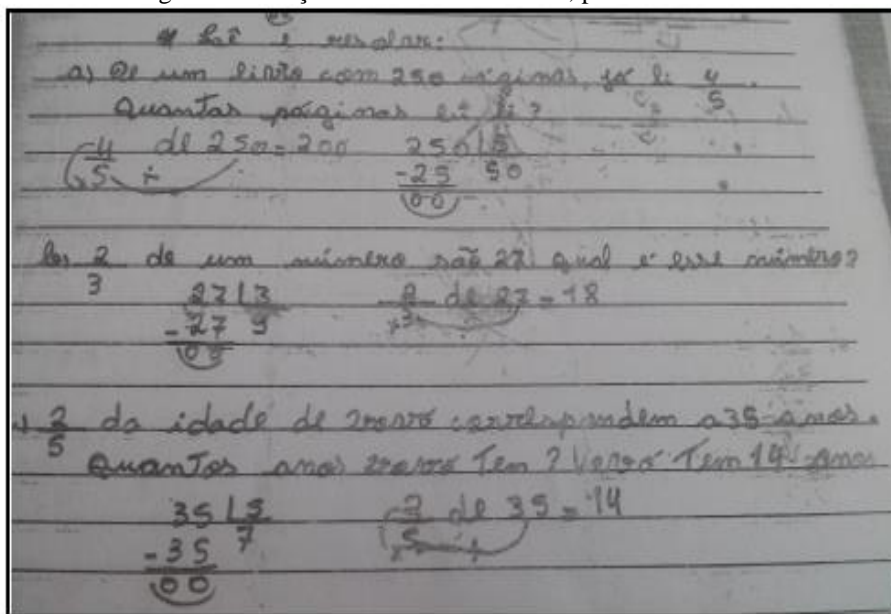 Lê e resolve:
a) De um livro com 250 páginas, já li 4/5.
Quantas páginas eu li?
4/5 de 250 = 200 250 | 5
÷ -25 50
00
b) 2/3 de um número são 27 qual é esse número?
27 | 3 2/3 de 27 = 18
-27 9
00
2/5 da idade de vovó correspondem a 35 anos.
Quantos anos vovó tem? Vovó tem 14 anos
35 | 5 2/5 de 35 = 14
-35 7
00